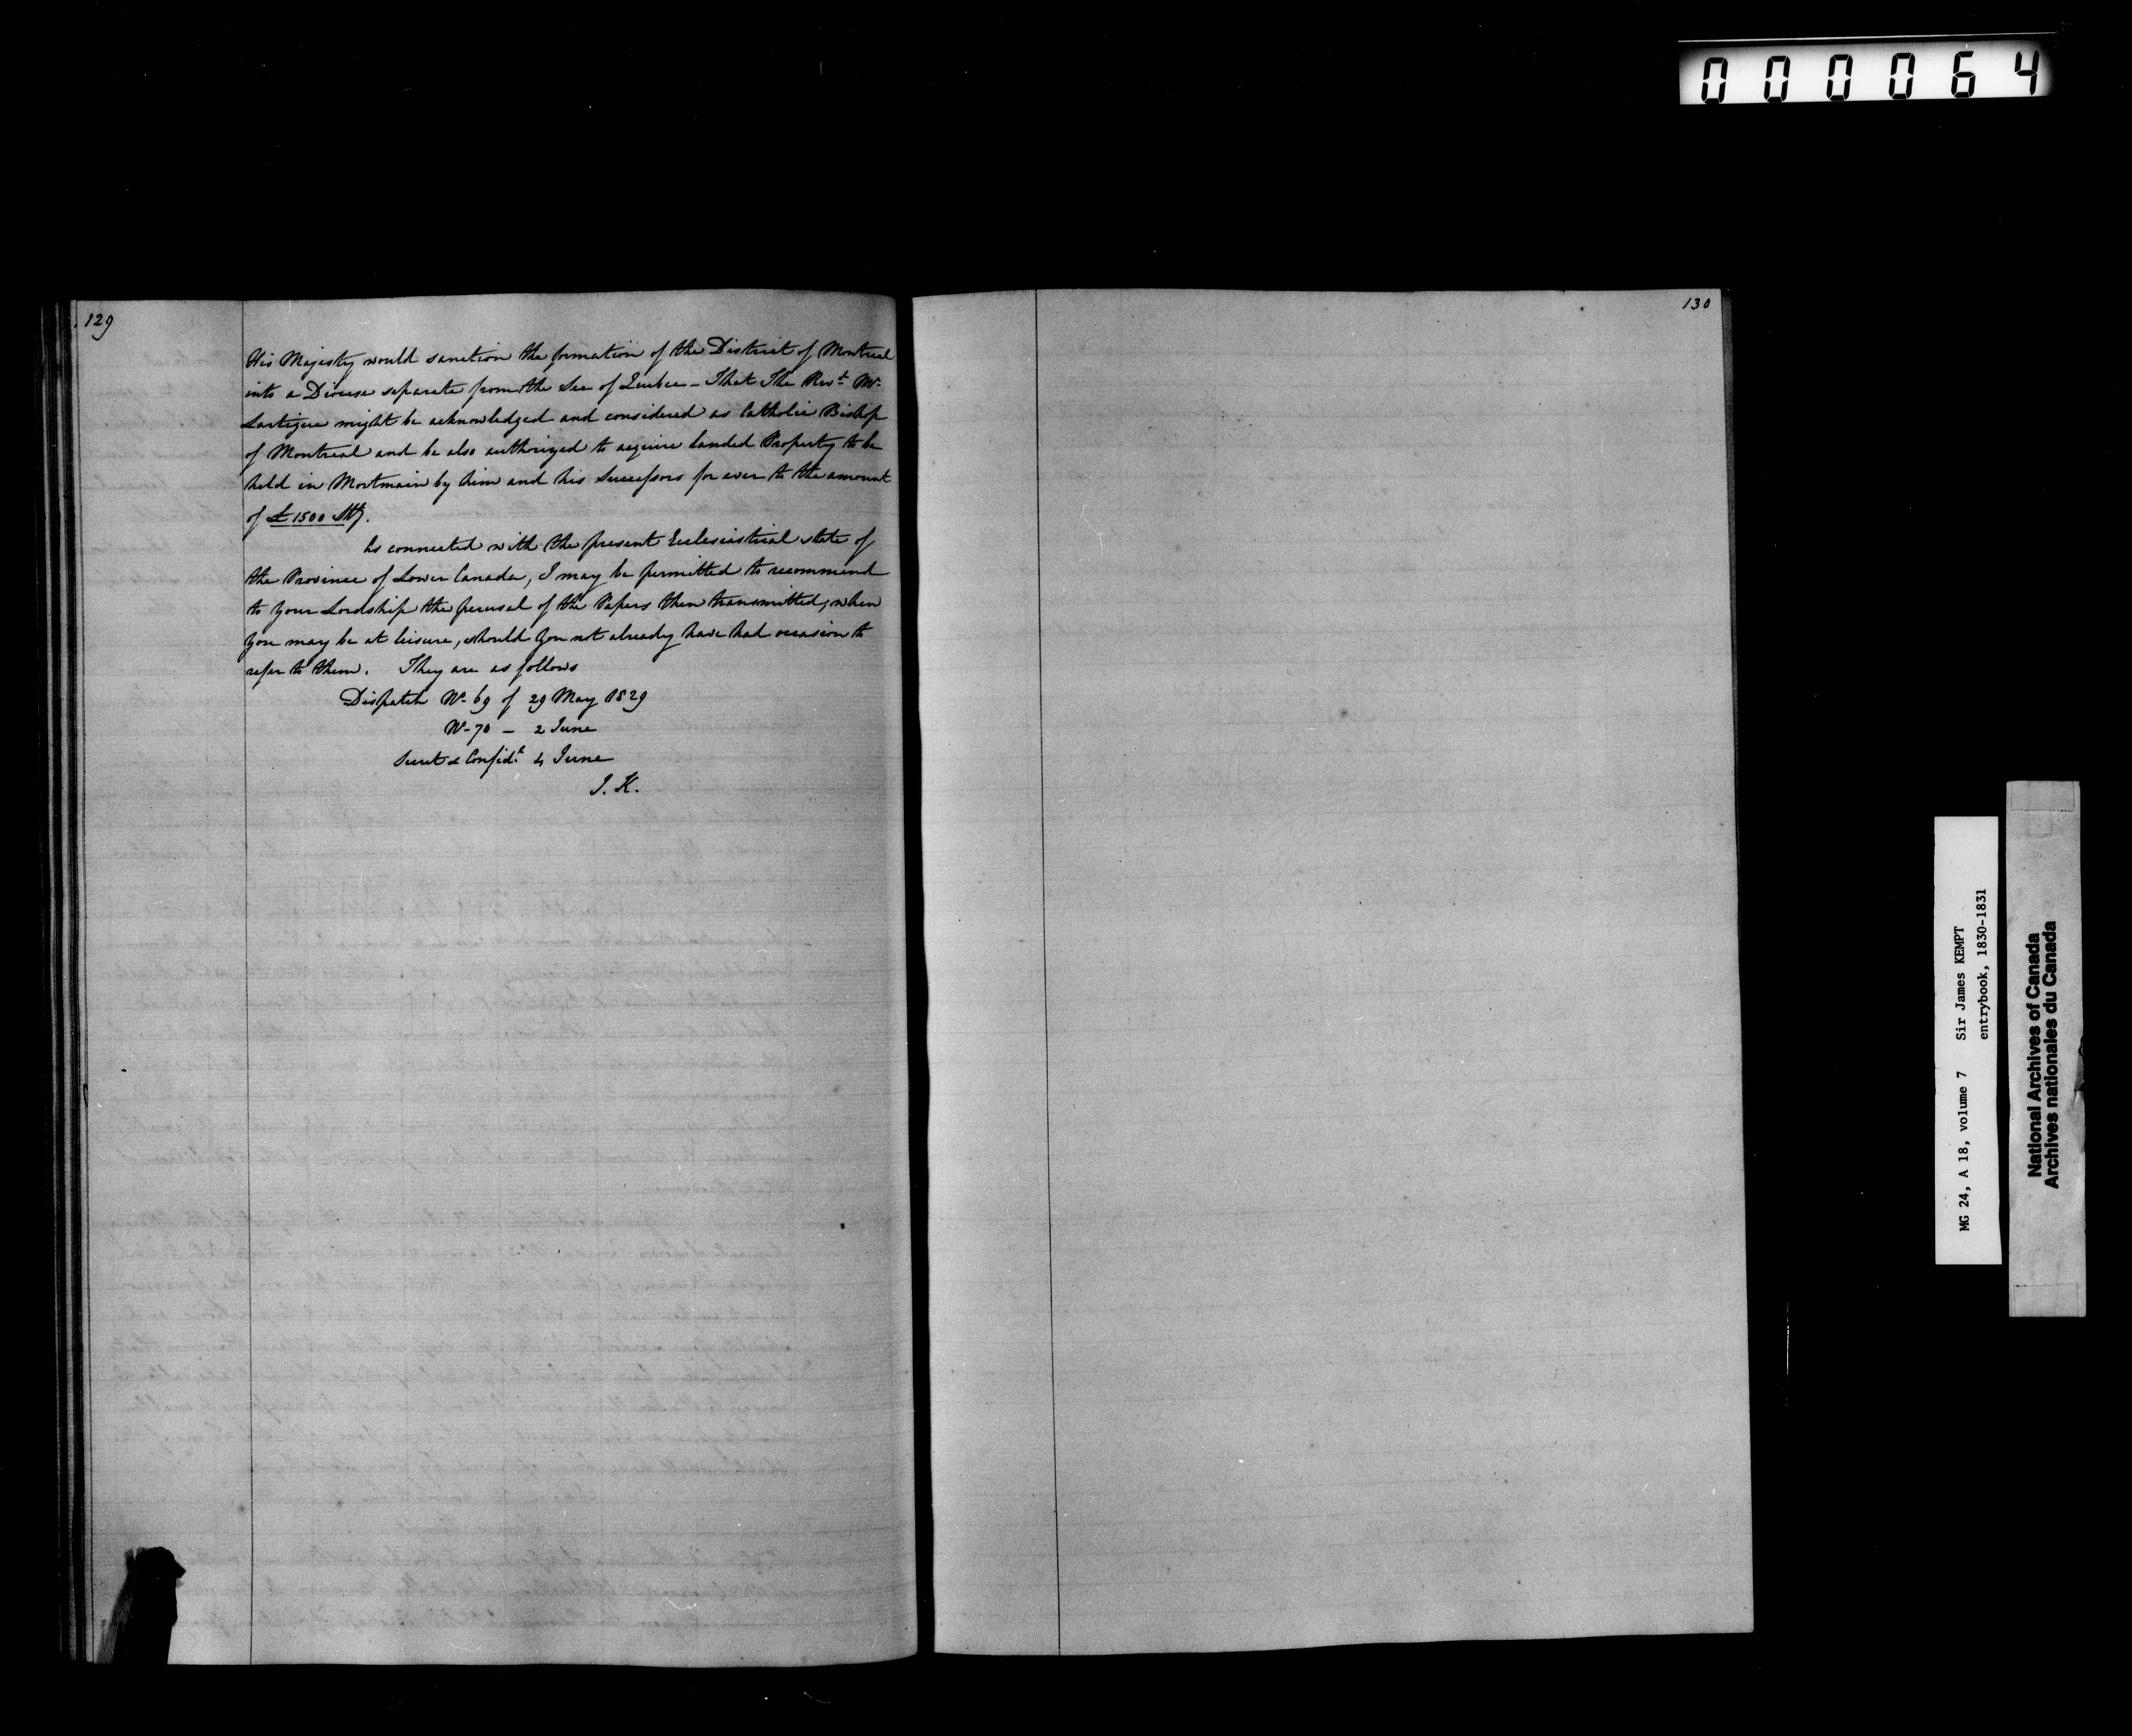 000064
129
His Majesty would sanction the formation of the District of Montreal
into a Diocese separate from the See of Quebec - That The Revt. Mr.
Lartigue might be acknowledged and considered as Catholic Bishop
of Montreal and be also authorized to acquire landed Property to be
held in Mortmain by him and his Successors for ever to the amount
of £1500 Stg.
As connected with the present Ecclesiastical state of
the Province of Lower Canada, I may be permitted to recommend
to your Lordship the perusal of the Papers then transmitted, when
you may be at leisure, should you not already have had occasion to
refer to them. They are as follows
Dispatch No. 69 of 29 May 1829
No. 70 - 2 June
Secret & Confidl. 4 June
J. K.
130
MG 24, A 18, volume 7 Sir James KEMPT
entrybook, 1830-1831
National Archives of Canada
Archives nationales du Canada